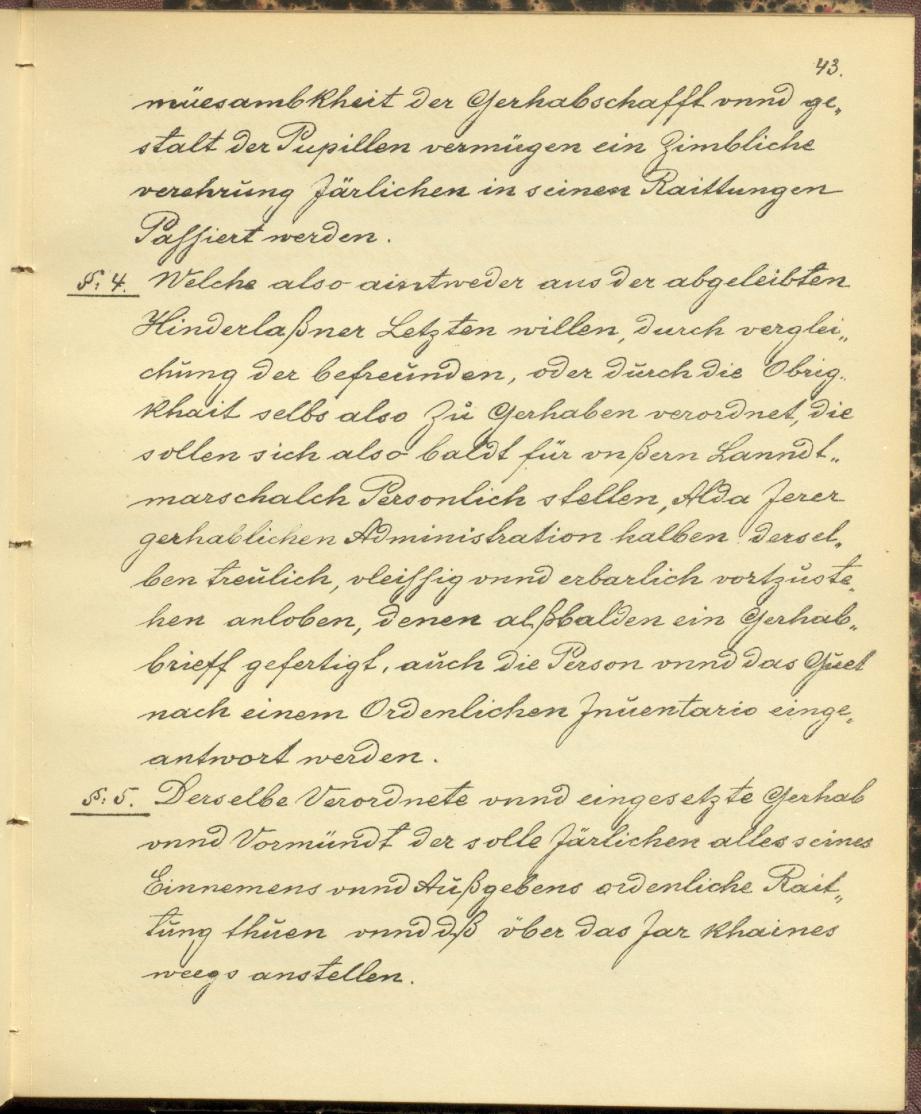 43.
müesambkheit der Gerhabschafft vnnd ge„
stalt der Pupillen vermügen ein Zimbliche
verehrŭng Järlichen in seinen Raittungen
Passiert werden.
§: 4. Welche also aintweder aus der abgeleibten
Hinderlaßner Letzten willen, durch verglei„
chŭng der befreŭnden, oder dŭrch die Obrig„
khait selbs also Zŭ Gerhaben verordnet, die
sollen sich also baldt für vnßern Lanndt„
marschalch Personlich stellen, Alda Jerer
gerhablichen Administration halben dersel„
ben treŭlich, vleissig vnnd erbarlich vortzŭste„
hen anloben, denen alßbalden ein Gerhab„
brieff gefertigt, aŭch die Person vnnd das Guet
nach einem Ordenlichen Jnŭentario einge„
antwort werden.
§: 5. Derselbe Verordnete vnnd eingesetzte Gerhab
vnnd Vormündt der solle Järlichen alles seines
Einnemens vnnd Aŭßgebens ordenliche Rait„
tŭng thŭen vnnd dß över das Jar khaines
weegs anstellen.